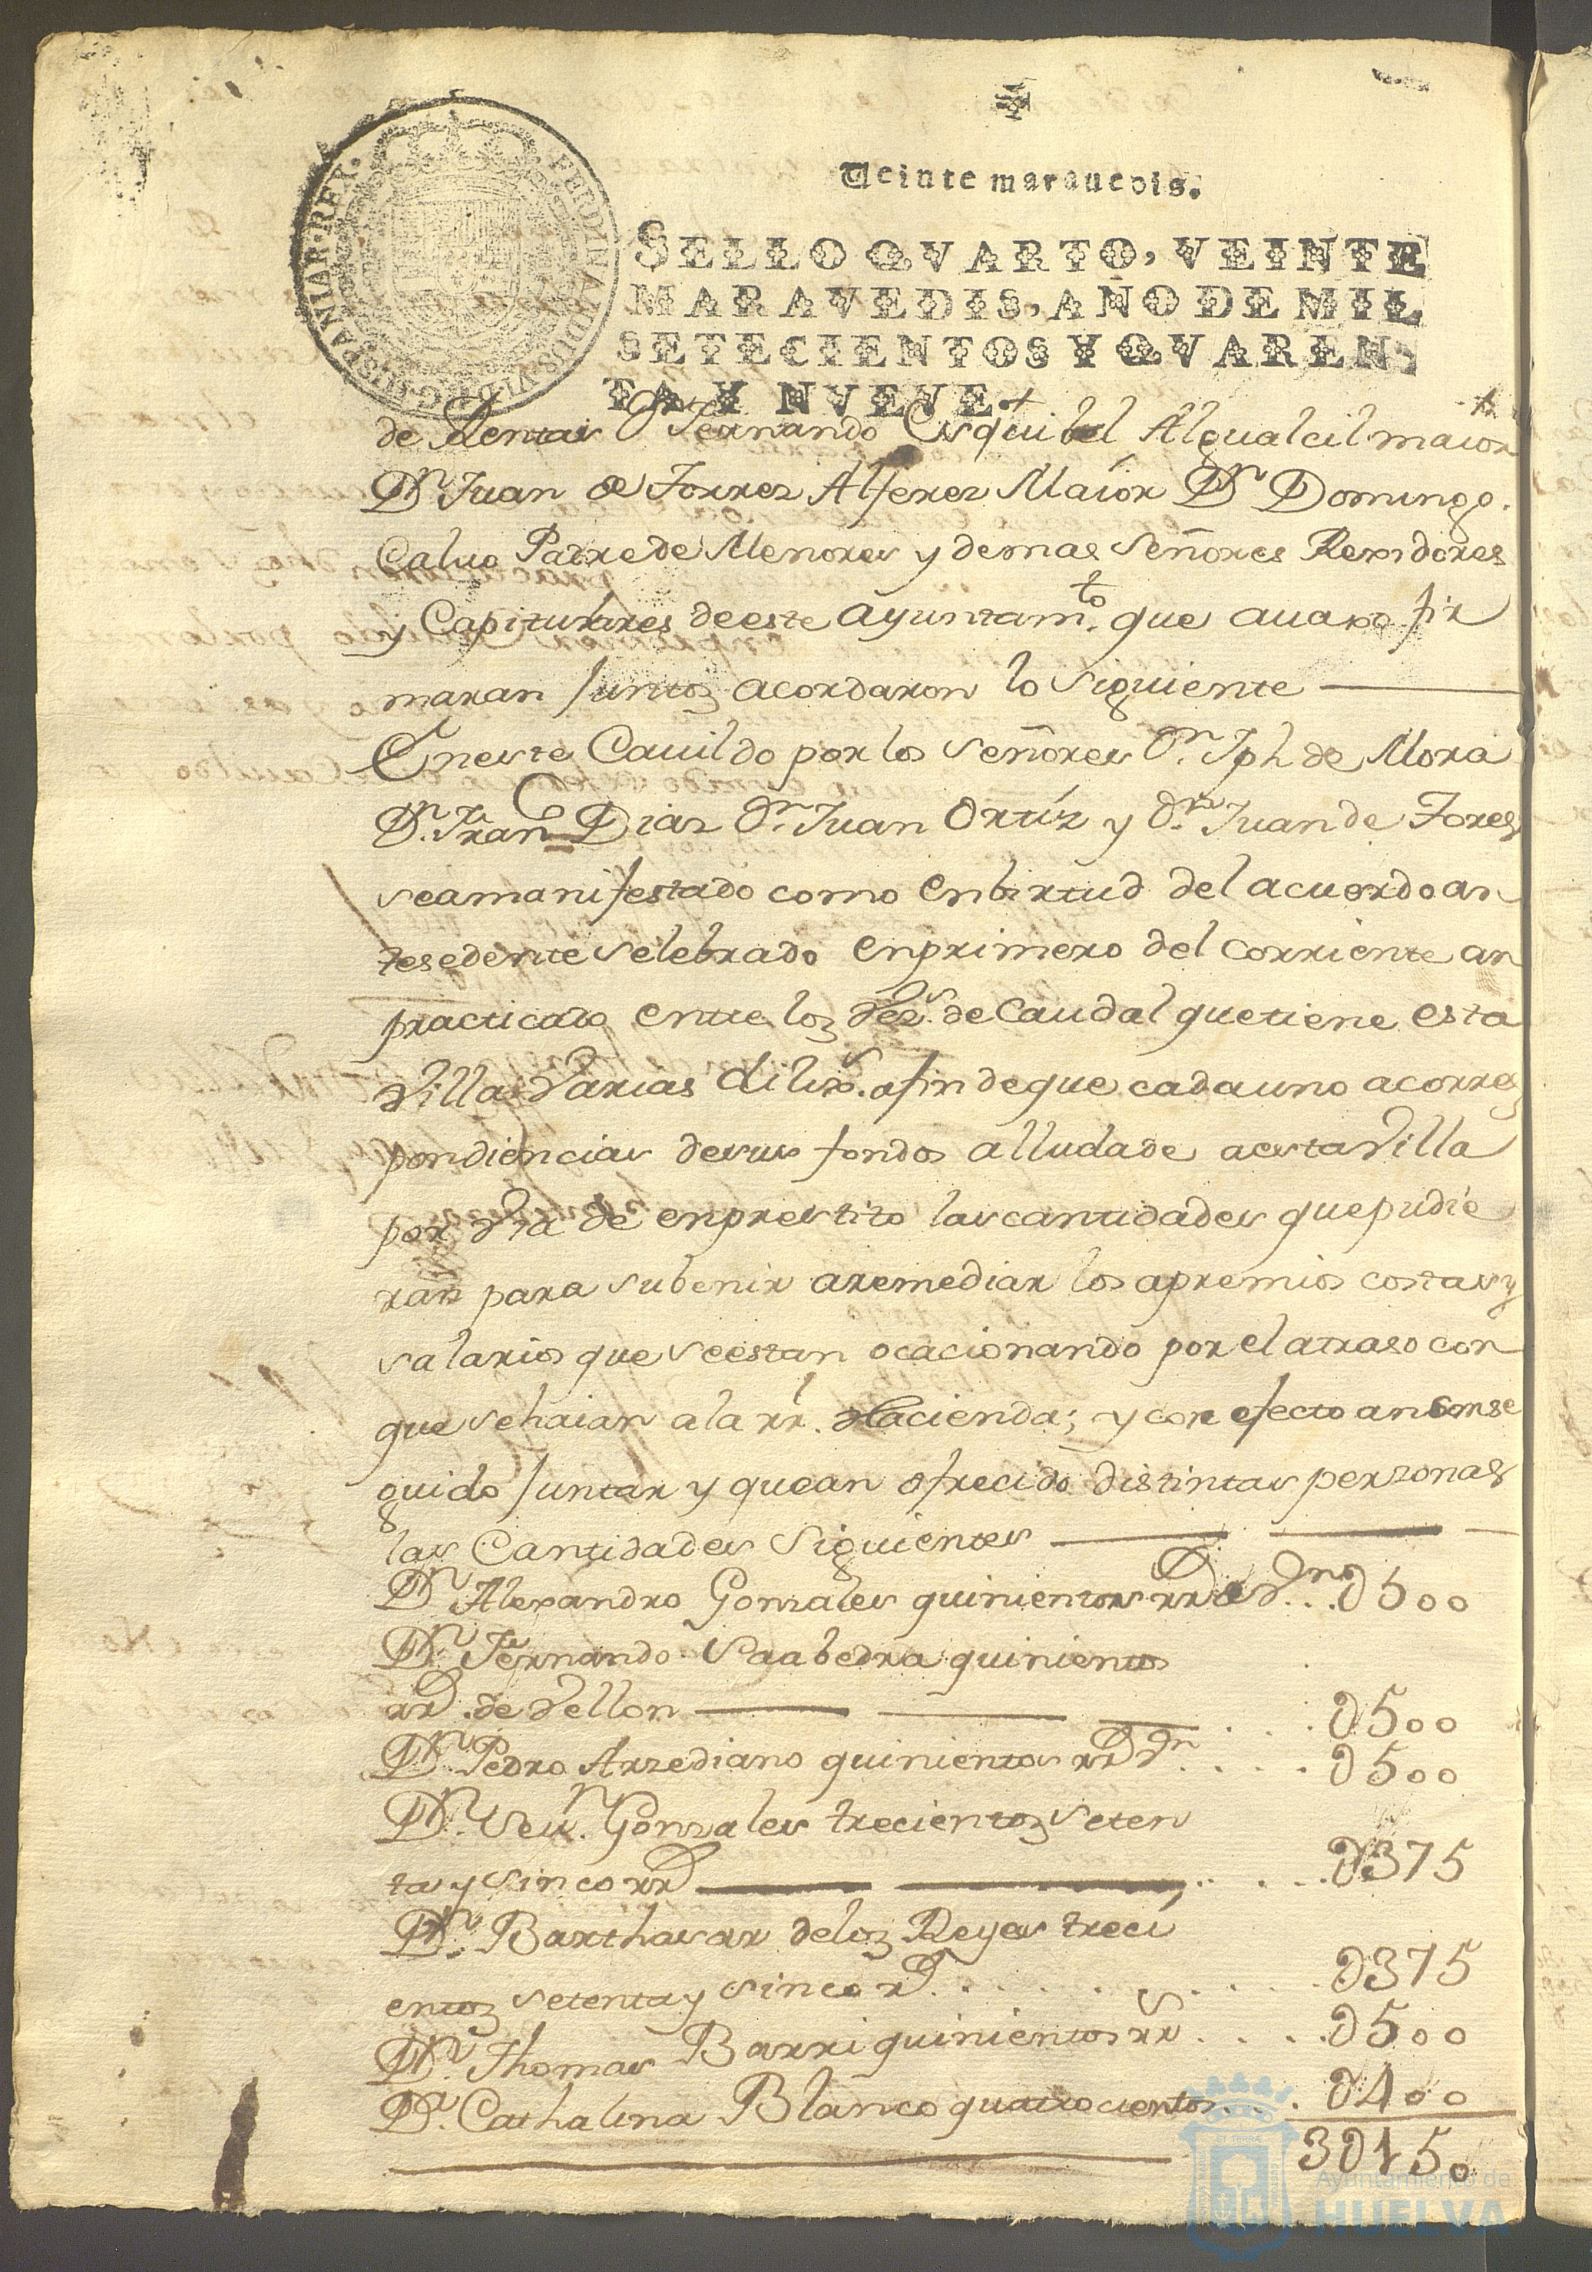 Veinte marauedis.
SELLO QVARTO, VEINTE
MARAVEDIS, AÑO DE MIL
SETECIENTOS Y QVAREN-
TA Y NVEVE.
FERDINANDUS VI D.G. HISPANIAR. REX.
de Rentas Dn Fernando Esquibel Algualcil maior
Dn Juan de Torres Alferes Maior Dn Domingo
Caluo Padre de Menores y demas Señores Rexidores
y Capitulares de este Ayuntamto. que auaxo fir
maran Juntos acordaron lo siguiente
En este Cauildo por los señores Dn. Jph de Mora
Dn. Franco Dias Dn. Juan Ortíz y Dn. Juan de Tores
seamanifestado como enbirtud del acuerdo an
tesedente selebrado enprimero del corriente an
practicado entre los de Caudal que tiene esta
Villa Varias dilixs. afin de que cadauno acorres
pondiencias desus fondos alludade aesta Villa
por Via de enprestito las cantidades que pudie
ran para subenir aremediar los apremios costas y
salarios que se estan ocacionando por el atraso con
que sehaian ala rl. Hacienda; y con efecto an conse
guido Juntar y quean ofrecido distintas personas
las Cantidades Siguientes
Dn Alexandro Gonzales quinientos rrs de Vn. .. D500
Dn. Fernando Saabedra quinientos
rrs. de Vellon . . . D500
Dn. Pedro Arzediano quinientos rrs Vn . . . . D500
Dn. Seun. Gonzales trecientos seten
ta y sinco rrs . . . D375
Dn. Barthasar delos Reyes treci
entos setenta y sinco rs . . . . D375
Dn. Thomas Barri quinientos rrs . . . . D500
Da. Cathalina Blanco quatrocientos . . . D400
3D150
Ayuntamiento de
HUELVA